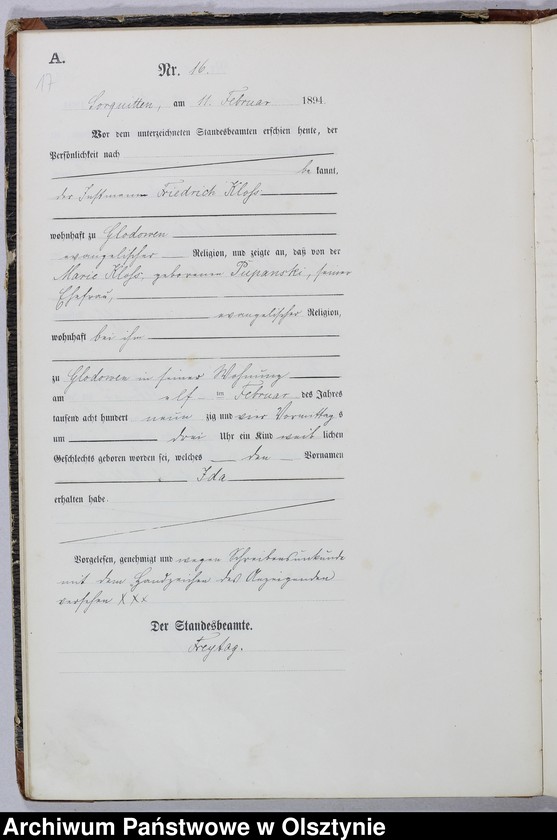 A.
17
Nr. 16.
Sorquitten, am 11. Februar 1894.
Vor dem unterzeichneten Standesbeamten erschien heute, der
Persönlichkeit nach
be kannt,
der Instmann Friedrich Kloss
wohnhaft zu Glodowen
evangelischer Religion, und zeigte an, daß von der
Marie Kloss, geborenen Pupanski, seiner
Ehefrau,
evangelischer Religion,
wohnhaft bei ihm
zu Glodowen in seiner Wohnung
am elf ten Februar des Jahres
tausend acht hundert neun zig und vier Vormittag s
um drei Uhr ein Kind weib lichen
Geschlechts geboren worden sei, welches den Vornamen
Ida
erhalten habe.
Vorgelesen, genehmigt und wegen Schreibensunkunde
mit dem Handzeichen des Anzeigenden
versehen XXX
Der Standesbeamte.
Freytag.
Archiwum Państwowe w Olsztynie